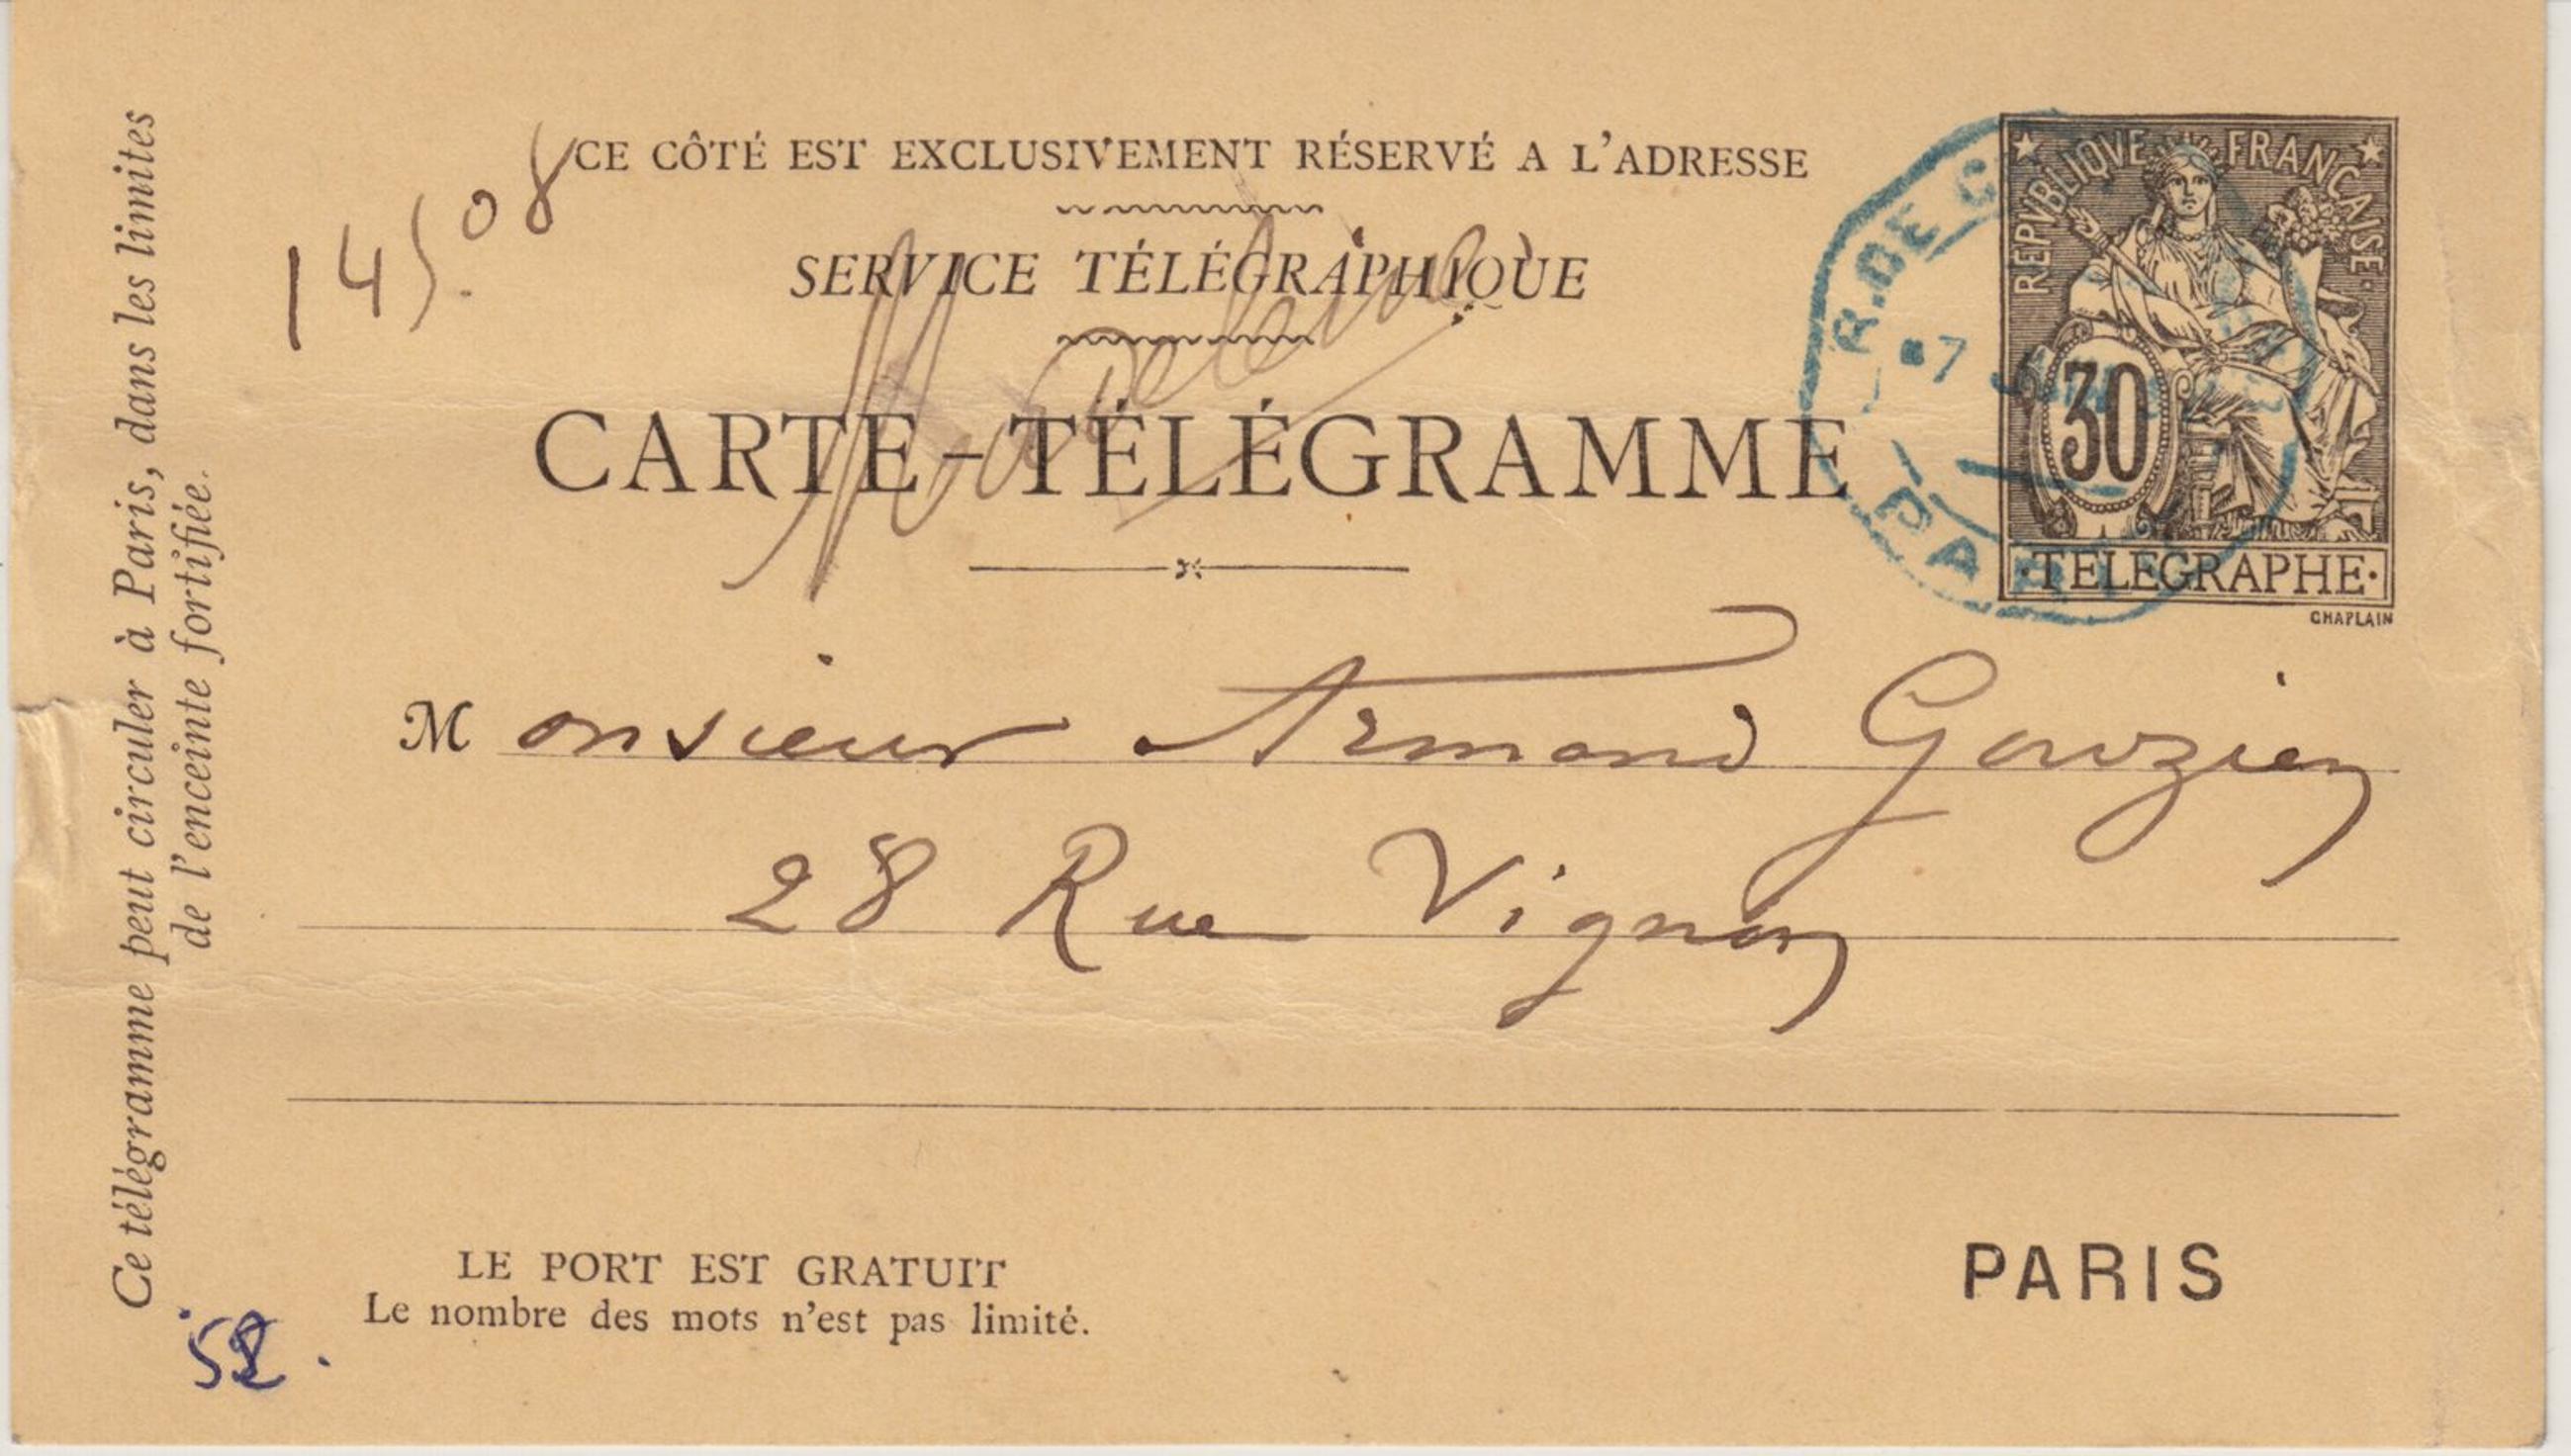 CE CÔTÉ EST EXCLUSIVEMENT RÉSERVÉ A L'ADRESSE
SERVICE TÉLÉGRAPHIQUE
CARTE-TÉLÉGRAMME
Madeleine
145.08
REPVBLIQVE FRANÇAISE
30
TELEGRAPHE
CHAPLAIN
R. DE
7
PARIS
Monsieur Armand Gouzien
28 Rue Vignon
LE PORT EST GRATUIT
Le nombre des mots n'est pas limité.
PARIS
Ce télégramme peut circuler à Paris, dans les limites
de l'enceinte fortifiée.